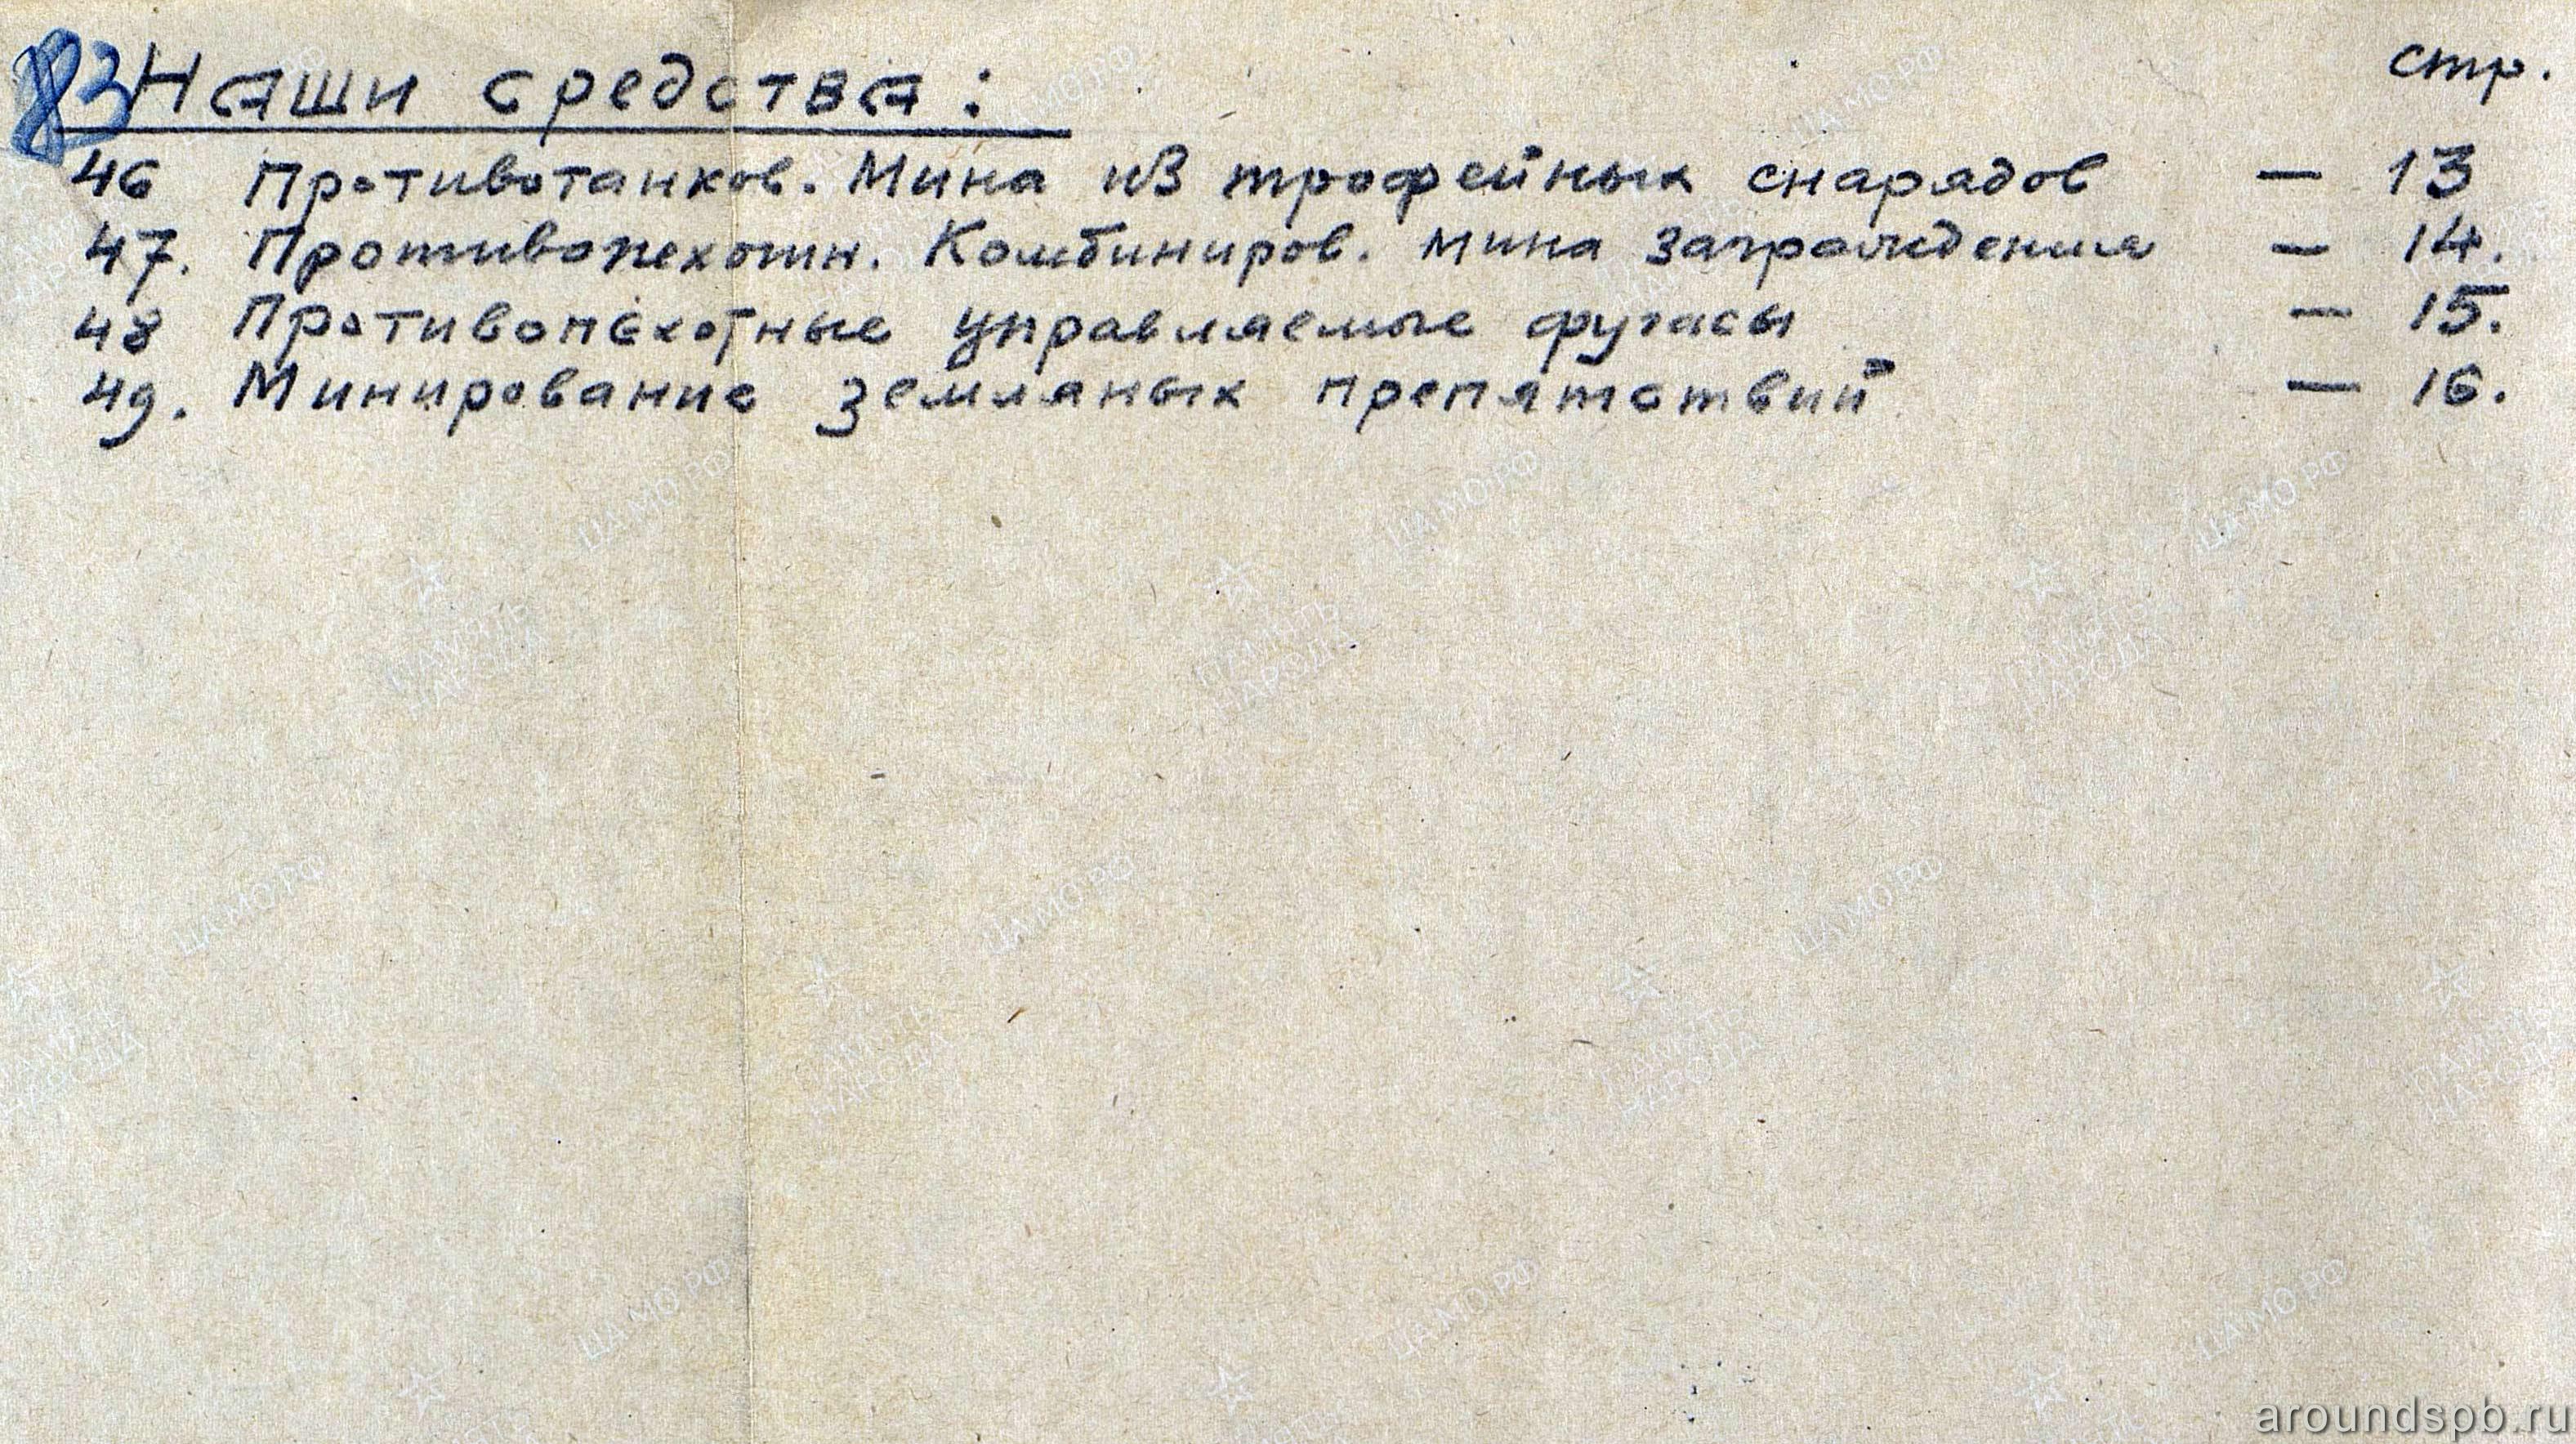 83 Наши средства: стр.
46 Противотанков. Мина из трофейных снарядов — 13
47. Противопехотн. Комбиниров. мина заграждения — 14.
48 Противопехотные управляемые фугасы — 15.
49. Минирование земляных препятствий — 16.
ЦАМО.РФ
ПАМЯТЬ НАРОДА
aroundspb.ru